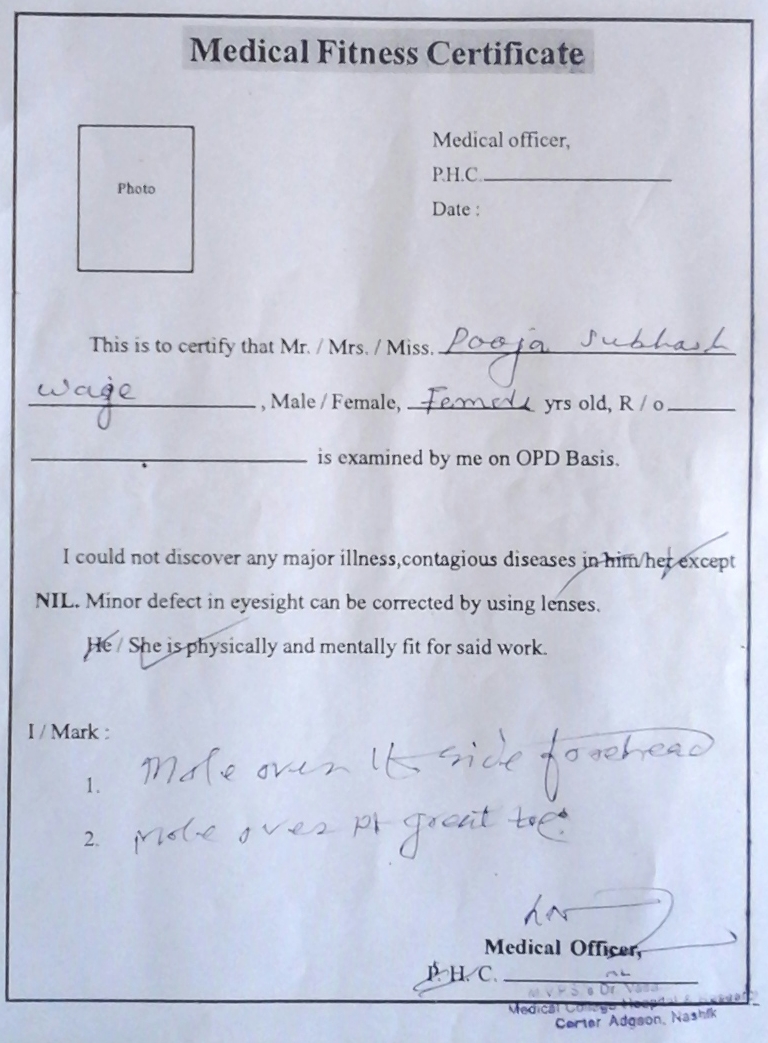 Medical Fitness Certificate
Photo
Medical officer,
P.H.C.
Date :
This is to certify that Mr. / Mrs. / Miss. Pooja Subhash
Wage , Male / Female, Female yrs old, R / o
is examined by me on OPD Basis.
I could not discover any major illness,contagious diseases in him/her except
NIL. Minor defect in eyesight can be corrected by using lenses.
He / She is physically and mentally fit for said work.
I / Mark :
1. Mole over lt side forehead
2. Mole over rt great toe.
Medical Officer,
P.H.C.
M.V.P.S.'s Dr.
Medical College Hospital &
Center Adgaon, Nashik